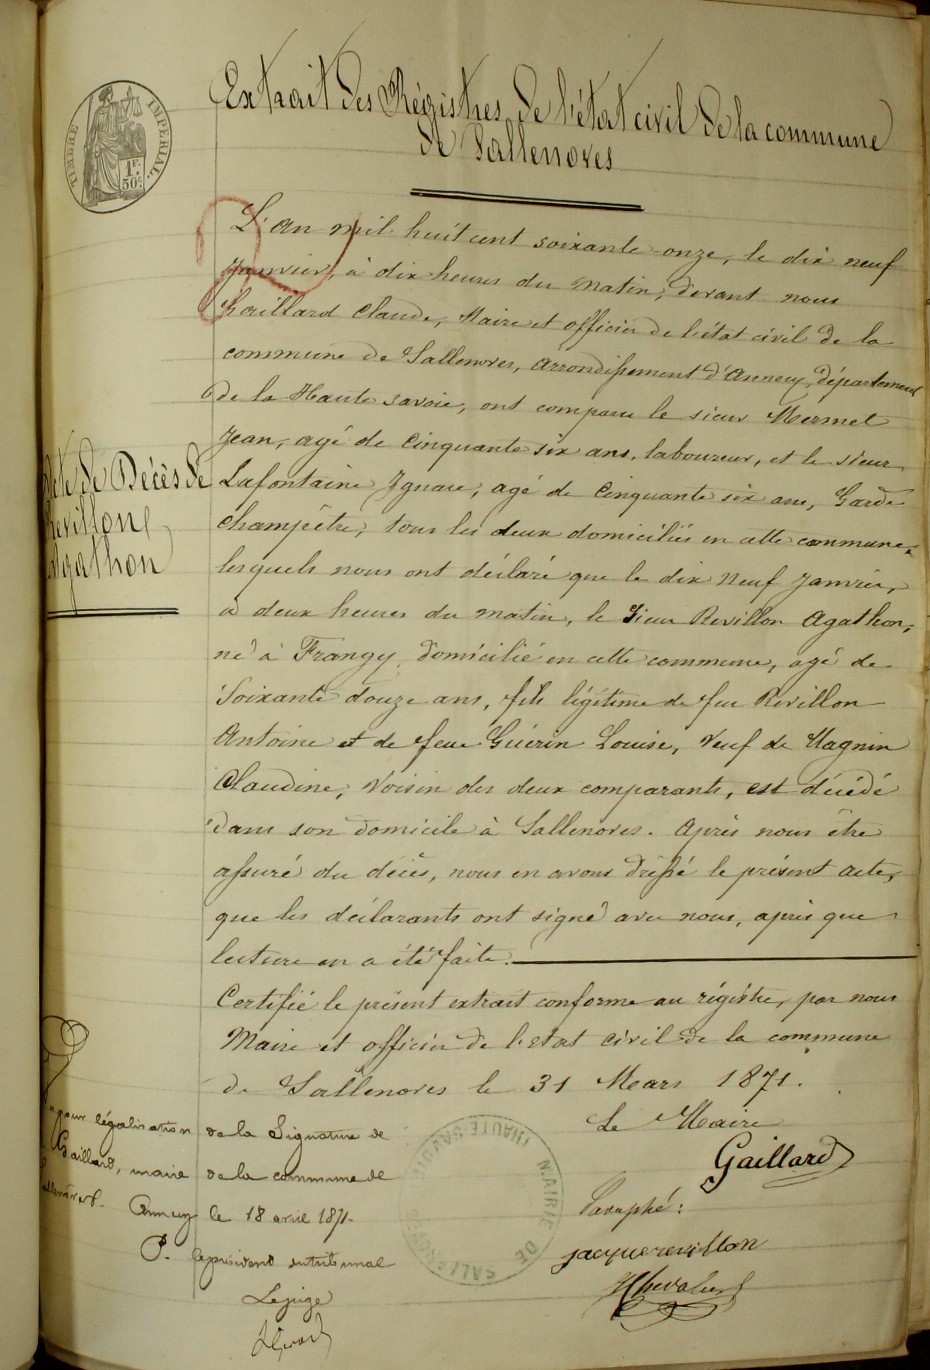 TIMBRE IMPERIAL
1F. 50C.
Extrait des Régistres de l'état civil de la commune
de Sallenoves
L'an mil huit cent soixante-onze, le dix neuf
Janvier, à dix heures du matin, devant nous
Gaillard Claude, Maire et officier de l'état civil de la
commune de Sallenoves, arrondissement d'Annecy, département
de la Haute Savoie, ont comparu le sieur Mermet
Jean, agé de cinquante six ans, laboureur, et le sieur
Lafontaine Ignace, agé de cinquante six ans, Garde
champêtre, tous les deux domiciliés en cette commune,
lesquels nous ont déclaré que le dix neuf Janvier,
à deux heures du matin, le Sieur Revillon Agathon,
né à Frangy, domicilié en cette commune, agé de
soixante douze ans, fils légitime de feu Revillon
Antoine et de feue Guérin Louise, veuf de Magnin
Claudine, voisin des deux comparants, est décédé
dans son domicile à Sallenoves. Après nous être
assuré du décès, nous en avons dréssé le présent acte,
que les déclarants ont signé avec nous, après que
lecture en a été faite.
Certifié le présent extrait conforme au régistre, par nous
Maire et officier de l'état civil de la commune
de Sallenoves le 31 Mars 1871.
Le Maire
Gaillard
Paraphé:
jacque revillon
Chevalier
Acte de Décès de
Revillon
Agathon
pour légalisation de la Signature de
Gaillard, maire de la commune de
Sallenoves. Annecy le 18 avril 1871.
P. le président du tribunal
Le juge
MAIRIE DE SALLENOVES (HAUTE-SAVOIE)